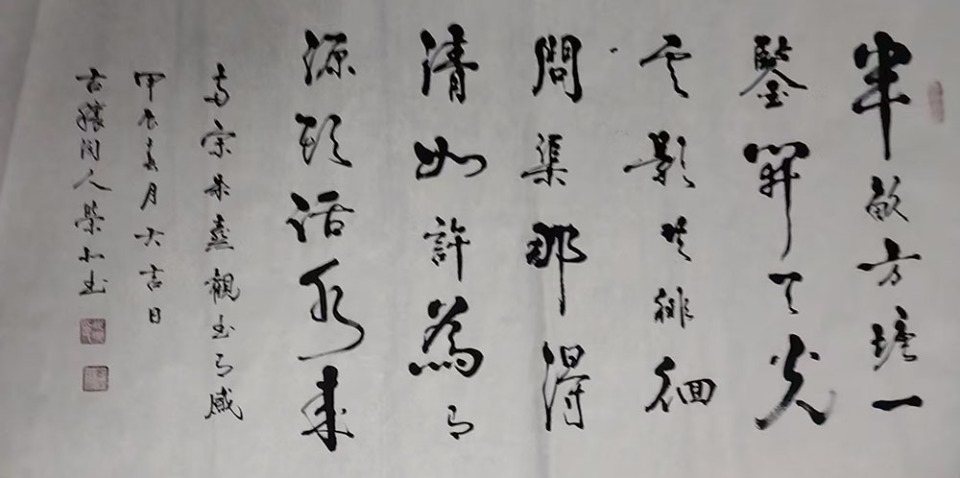 半畝方塘一
鑒開天光
雲影共徘徊
問渠那得
清如許為有
源頭活水來
南宋朱熹觀書有感
甲辰春月大吉日
古滕閑人榮書